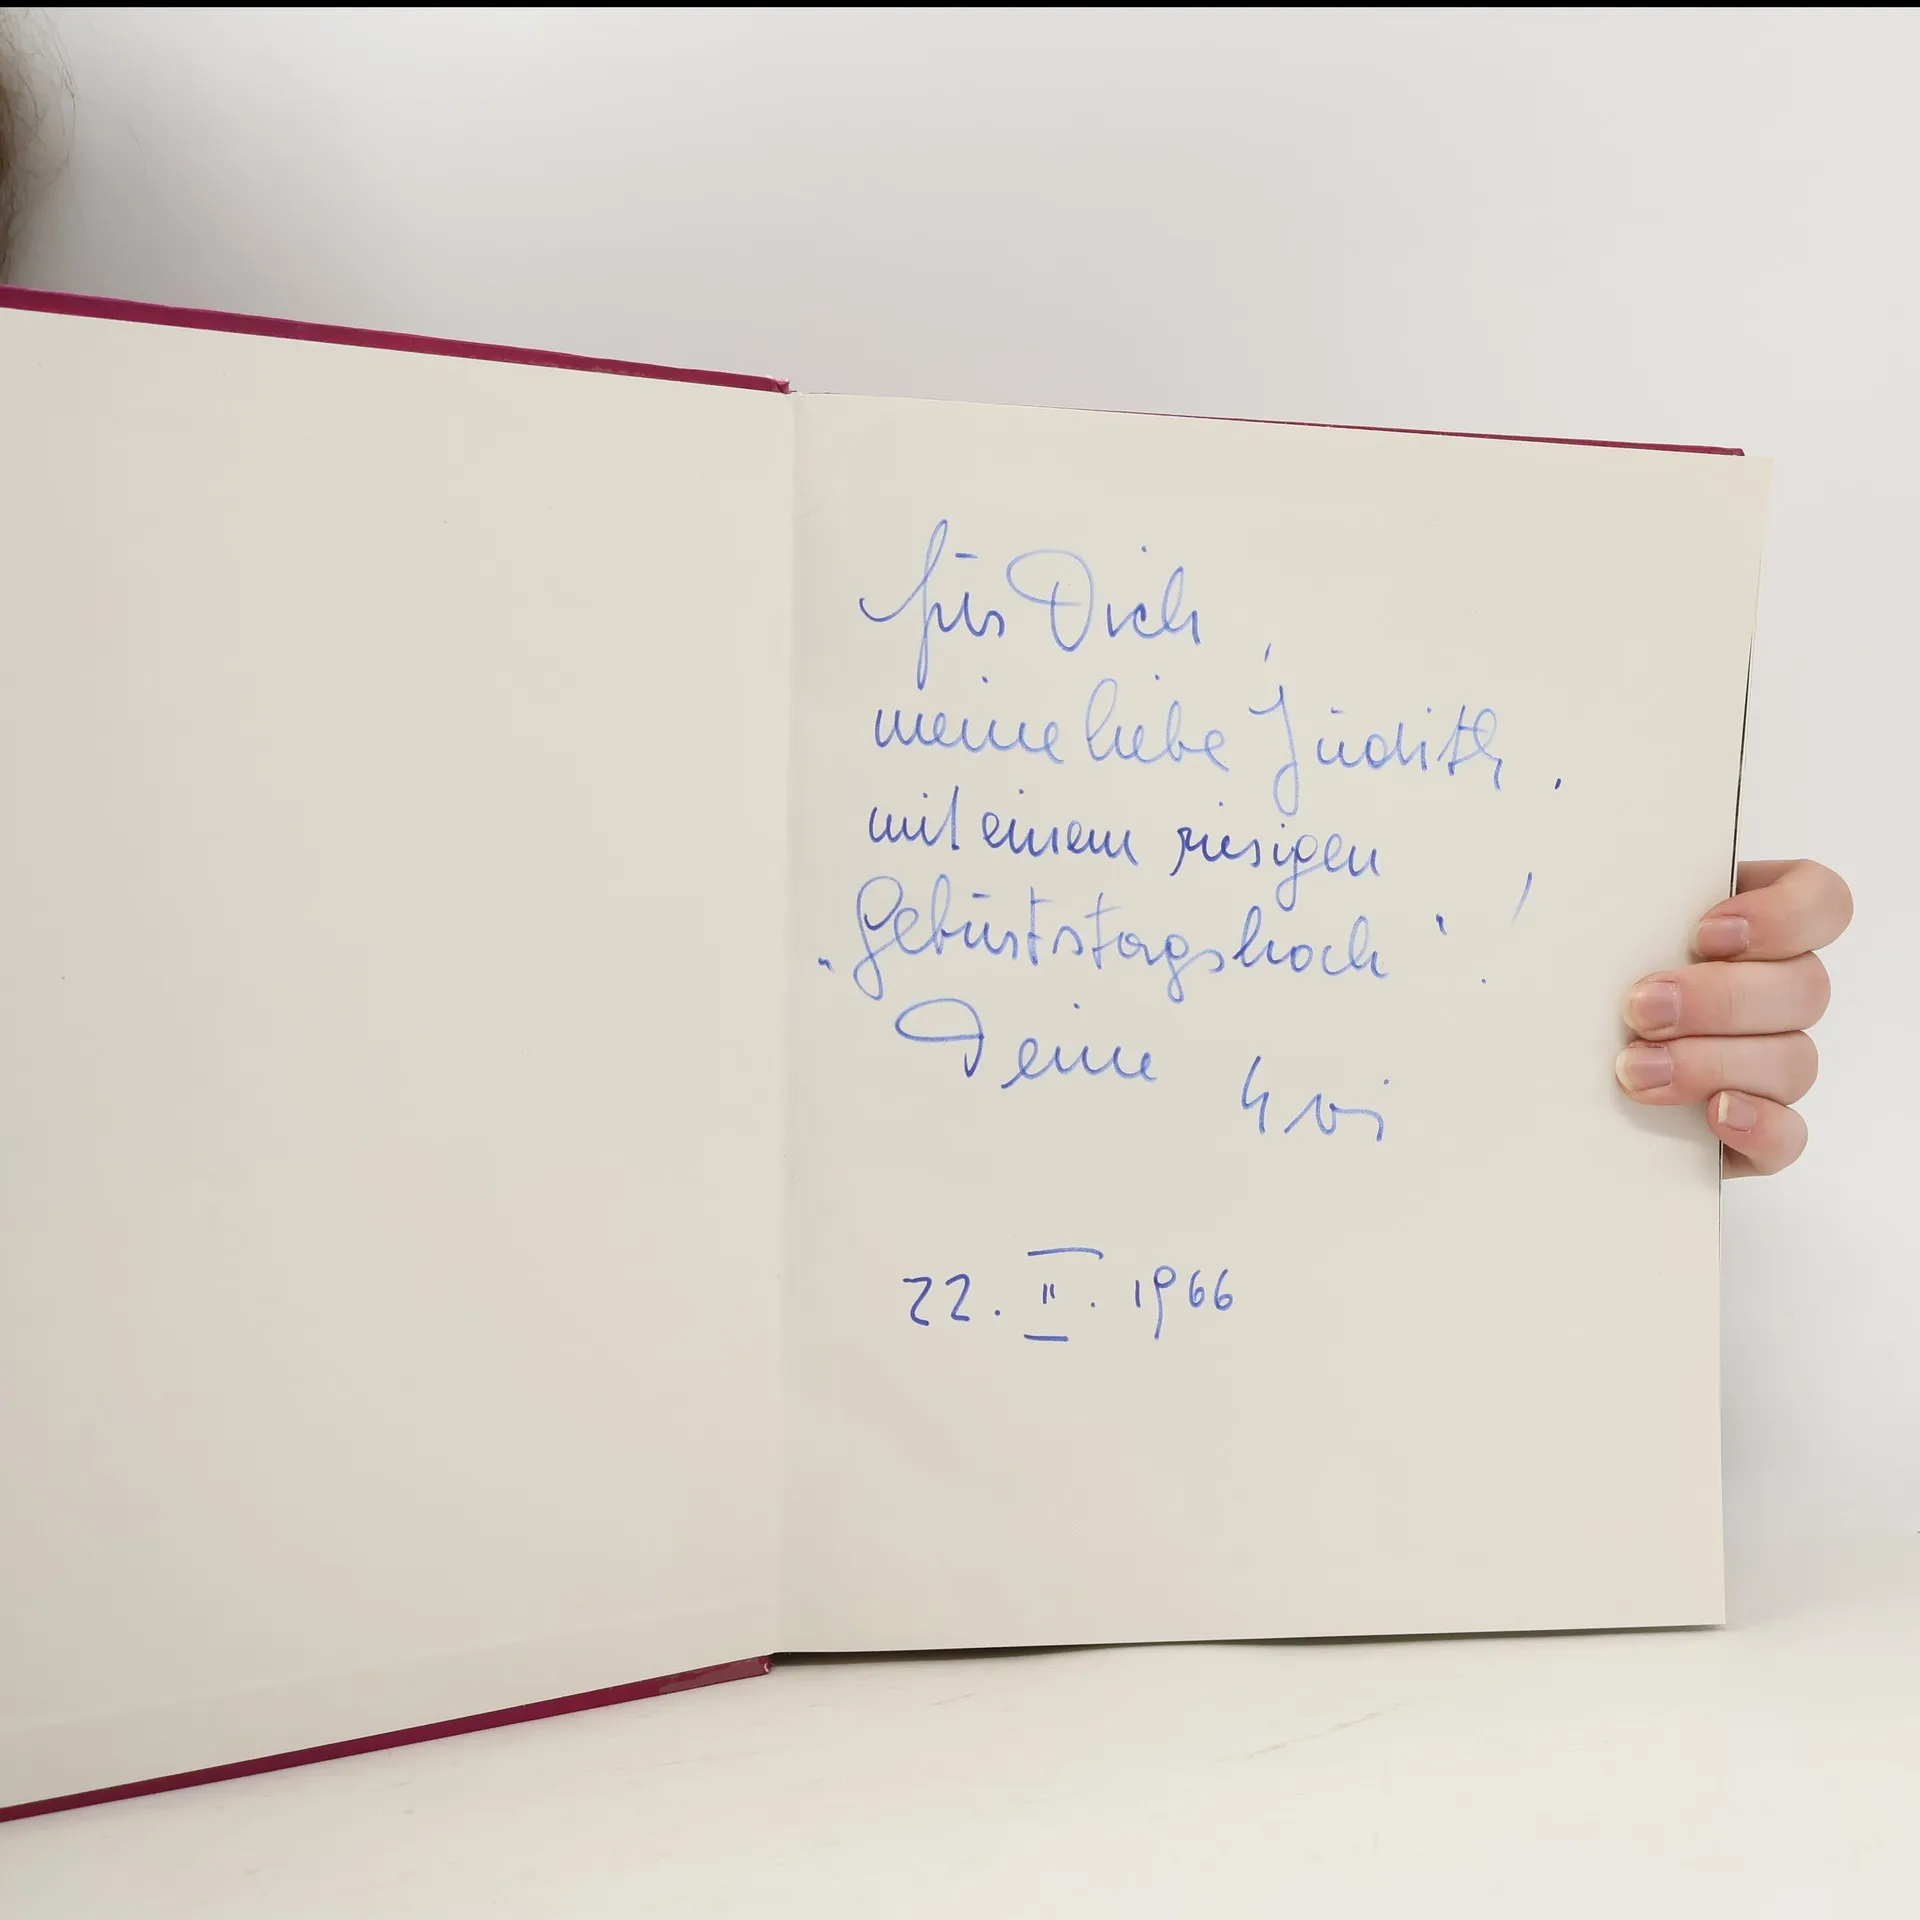 für Dich,
meine liebe Judith,
mit einem riesigen
„Geburtstagshoch“!
Deine
22. II. 1966